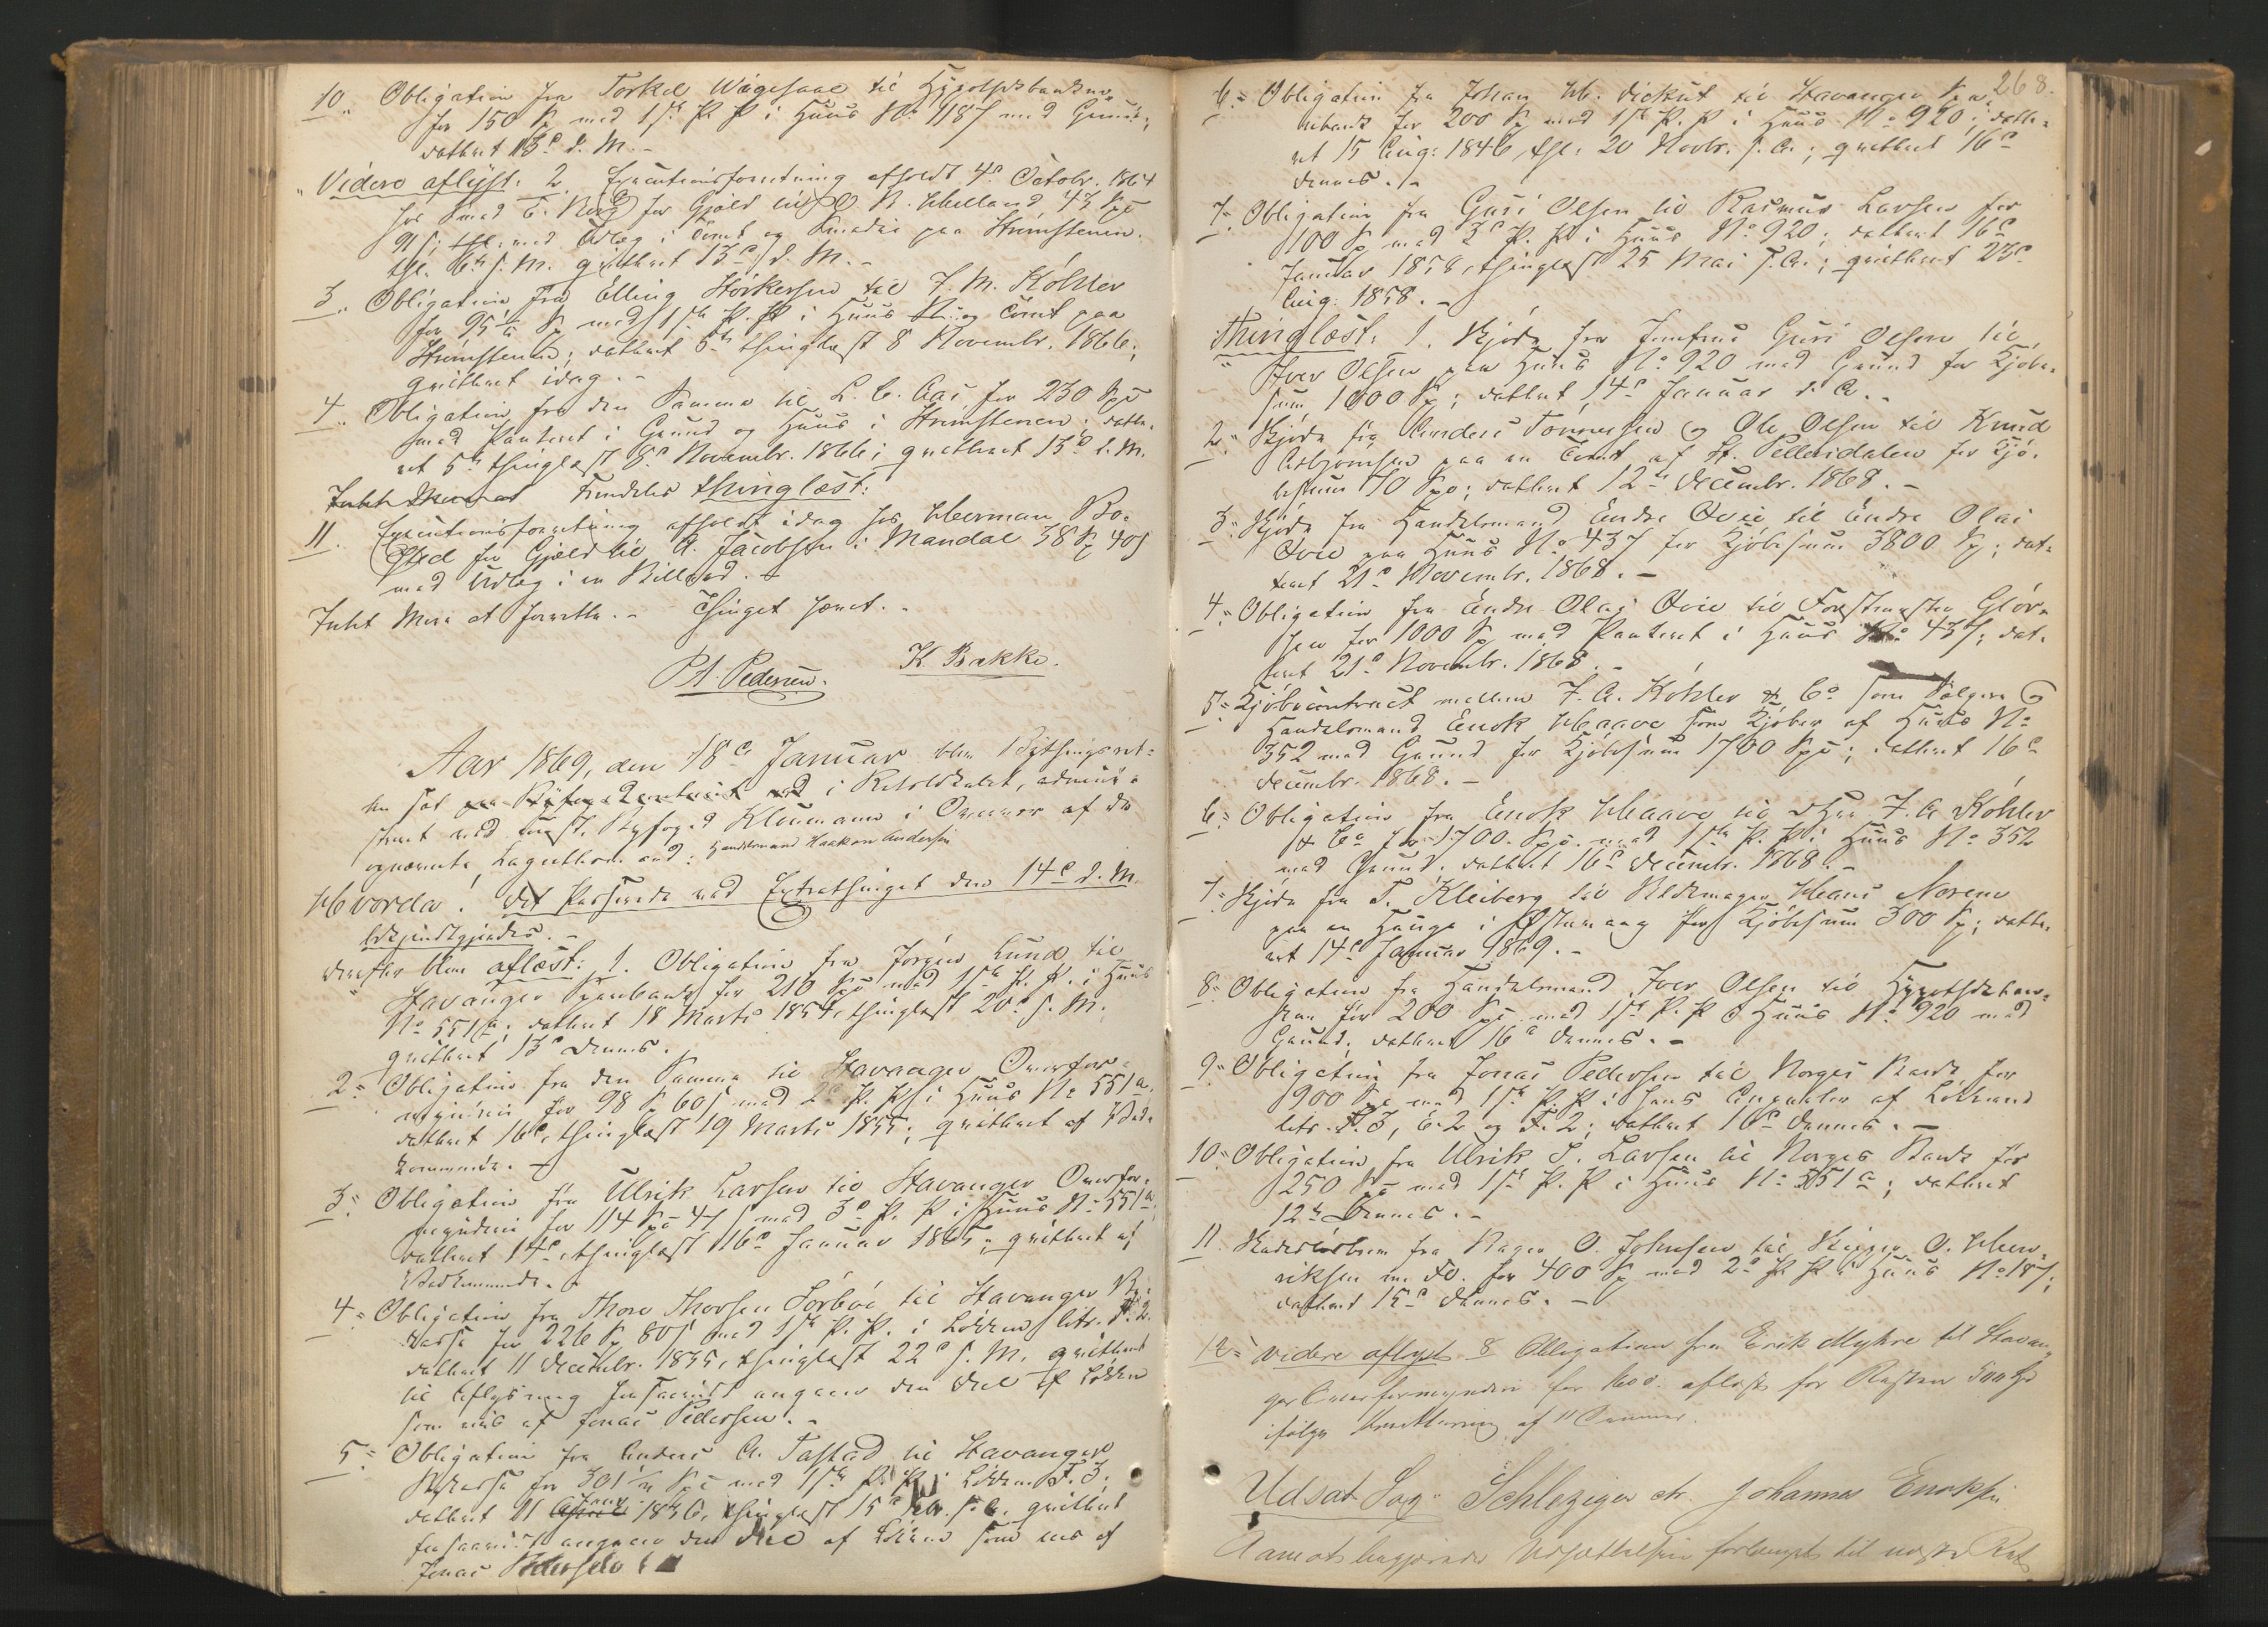 10. Obligation fra Torkel Wågesaae til Hypothekbanken
for 150 Sp med 1ste P. P. i Huus No 1187 med Grund;
datteret 13de d. M. -
Videre aflyst: 2. Executionsforretning afholdt 4de Octobr. 1864
hos Smed E. Berg for Gjæld til O B. Helland 43 Spd
91 s; thgl. med Udlæg i Tomt og Smedie paa Strømstenen.
thgl. 6te s. M. qvitteret 13de d. M. -
3. Obligation fra Elling Størkersen til F. M. Köhler
for 95 Sp med 1ste P. P. i Huus og Tomt paa
Strømstenen; datteret 5te thinglæst 8 Novembr. 1866;
qvitteret idag. -
4. Obligation fra den Samme til L. C. Aas for 230 Spd
med Panteret i Grund og Huus i Strømstenen; datte-
ret 5te thinglæst 8de Novembr. 1866; qvitteret 13de d. M.
Fremdeles thinglæst:
11. Executionsforretning afholdt idag hos Herman Bo-
sted for Gjæld til A. Jacobsen i Mandal 38 Sp 40 s
med Udlæg i en Billard. -
Intet Mere at forrette. - Thinget hævet. -
P A. Pedersen. K Bakke.
Aar 1869, den 18de Januar blev Bythingsret-
ten sat i Retslokalet, admini-
streret ved const. Byfoged Kloumann i Overvær af de
opnævnte Laugrettesmænd: Handelsmand Haakon Andersen
Hvorda! Det Passerede ved Extrathinget den 14de d. M.
bekjendtgjordes. -
Derefter blev aflæst: 1. Obligation fra Jörgen Lund til
Stavanger Sparebank for 210 Spd med 1ste P. P. i Huus
No 551a; datteret 18 Marts 1854, thinglæst 20de s. M.
qvitteret 13de dennes.
2. Obligation fra den Samme til Stavanger Overfor-
mynderi for 98 Sp 60 s med 2de P. P. i Huus No 551a,
datteret 16de, thinglæst 19 Marts 1855; qvitteret af Ved-
kommende. -
3. Obligation fra Ulrik Larsen til Stavanger Overfor-
mynderi for 114 Spd 47 s med 3de P. P. i Huus No 551a;
datteret 14de, thinglæst 16de Januar 1865, qvitteret af
Vedkommende. -
4. Obligation fra Thore Thorsen Sörböe til Stavanger By-
kasse for 226 Sp 80 s med 1ste P. P. i Lökken litr. F. 2.
datteret 11 Decembr. 1855, thinglæst 22de s. M. qvitteret
til Aflysning forsaavidt angaaer den Deel af Lökken
som eies af Jonas Pedersen. -
5. Obligation fra Anders A. Tastad til Stavanger
Bykasse for 301 Spd med 1ste P. P. i Lökken F. 3.
datteret 11 1856, thinglæst 15de s. A. qvitteret
forsaavidt angaaer den Deel af Lökken som eies af
Jonas Pedersen
268.
6. Obligation fra Johan H. Vickut til Stavanger Spa-
rebank for 200 Sp med 1ste P. P. i Huus No 920; datte-
ret 15 Aug: 1846, thgl. 20 Novbr. s. A.; qvitteret 16de
dennes. -
7. Obligation fra Guri Olsen til Rasmus Larsen for
100 Sp med 2de P. P. i Huus No 920; datteret 16de
Januar 1858, thinglæst 25 Mai s. A.; qvitteret 23de
Aug: 1858. -
Thinglæst: 1. Skjöde fra Jomfrue Guri Olsen til
Iver Olsen paa Huus No 920 med Grund for Kjöbe-
sum 1000 Sp; datteret 14de Januar d. A. -
2. Skjöde fra Anders Tönnesen og Ole Olsen til Knud
Asbjörnsen paa en Tomt af St. Pedersdalen for Kjö-
besum 70 Spd; datteret 12te Decembr. 1868. -
3. Skjöde fra Handelsmand Endre Qvie til Endre Olai
Qvie paa Huus No 437 for Kjöbesum 3800 Sp; dat-
teret 21de Novembr. 1868. -
4. Obligation fra Endre Olai Qvie til Forstmester Glör-
sen for 1000 Sp med Panteret i Huus No 437; dat-
teret 21de Novembr. 1868. -
5. Kjöbecontract mellem F. A. Köhler & Co som Sælger og
Handelsmand Enok Haave som Kjöber af Huus No
352 med Grund for Kjöbesum 1700 Spd; datteret 16de
Decembr. 1868. -
6. Obligation fra Enok Haave til F. A. Köhler
& Co for 1700 Spd med 1ste P. P. i Huus No 352
med Grund; datteret 16de Decembr. 1868. -
7. Skjöde fra T. Kleiberg til Uhrmager Hans Norene
paa en Hauge i for Kjöbesum 300 Sp; datte-
ret 14de Januar 1869. -
8. Obligation fra Handelsmand Iver Olsen til Hypothekban-
ken for 200 Spd med 1ste P. P. i Huus No 920 med
Grund; datteret 16de dennes. -
9. Obligation fra Jonas Pedersen til Norges Bank for
900 Spd med 1ste P. P. i hans Anparter af Lökkene
litr. F. 3, E. 2 og F. 2; datteret 16de dennes. -
10. Obligation fra Ulrik S. Larsen til Norges Bank for
250 Spd med 1ste P. P. i Huus No 551a; datteret
12te dennes. -
11. Skadeslösbrev fra Bager O. Johnsen til Skipper O. Hen-
riksen m. Fl. for 400 Sp med 2de P. P. i Huus No 187;
datteret 15de dennes. -
12. videre aflyst 8 Obligation fra Erik Myhre til Stavan-
ger Overformynderi for 1600. aflæst for Resten 500 Spd
ifølge Qvittering af 11 Januar.
Udsat Sag: Schleziger ctr. Johannes Enoksen
Aamot begjærede Udsættelsen forlænget til næste Ret